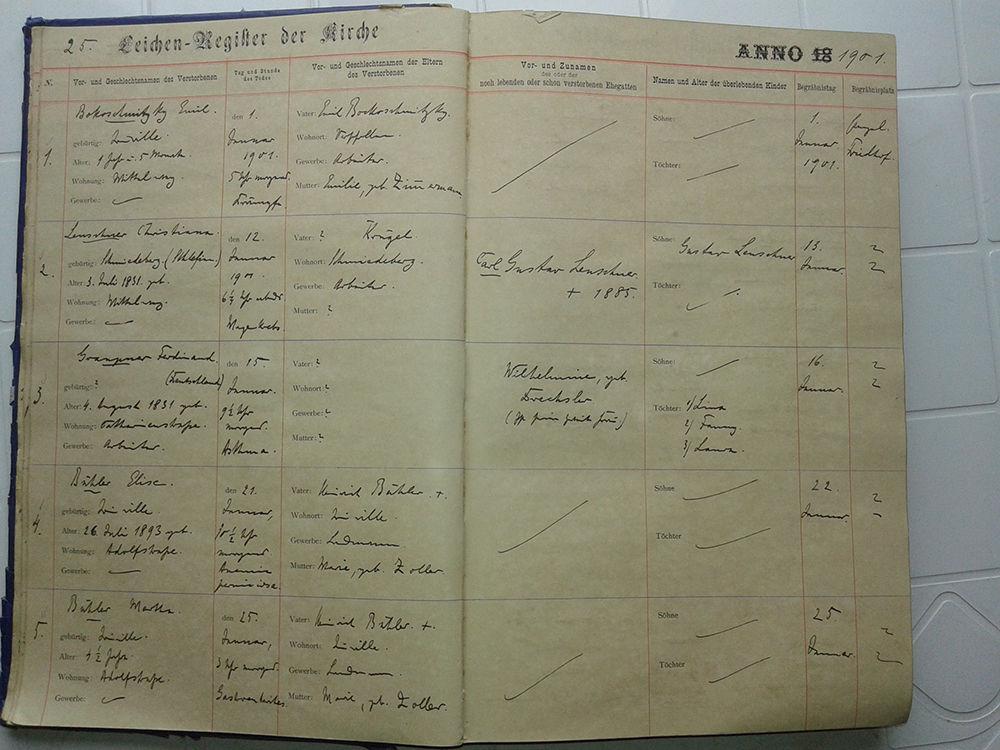 25. Leichen-Register der Kirche
ANNO 18 1901.
N. Vor- und Geschlechtsnamen des Verstorbenen
Tag und Stunde des Todes
Vor- und Geschlechtsnamen der Eltern des Verstorbenen
Vor- und Zunamen
des oder der
noch lebenden oder schon verstorbenen Ehegatten
Namen und Alter der überlebenden Kinder
Begräbnistag
Begräbnisplatz
1.
Emil.
gebürtig: Joinville.
Alter: 1 Jahr u. 5 Monate
Wohnung: Mittelweg
Gewerbe:
den 1.
Januar
1901.
5 Uhr morgens
Krämpfe
Vater: Emil
Wohnort:
Gewerbe: Arbeiter.
Mutter: Emilie, geb. Zimermann
Söhne:
Töchter:
1.
Januar
1901.
Friedhof.
2.
Leuschner Christiana.
gebürtig: Schmiedeberg (Schlesien).
Alter: 3. Juli 1831. geb.
Wohnung: Mittelweg
Gewerbe:
den 12.
Januar
1901
Uhr abends
Magenkrebs.
Vater: ? Krügel.
Wohnort: Schmiedeberg.
Gewerbe: Arbeiter.
Mutter: ?
Carl Gustav Leuschner
+ 1885.
Söhne: Gustav Leuschner
Töchter:
13.
Januar.
3.
Ferdinand.
gebürtig: ? (Deutschland)
Alter: 4. August 1831 geb.
Wohnung: Catharinenstrasse.
Gewerbe: Arbeiter.
den 15.
Januar.
9½ Uhr
morgens.
Asthma.
Vater: ?
Wohnort: ?
Gewerbe: ?
Mutter: ?
Wilhelmine, geb.
Drechsler
Söhne:
Töchter: 1/ Lina
2/ Fanny.
3/ Laura.
16.
Januar.
4.
Bühler Elise.
gebürtig: Joinville.
Alter: 26. Juli 1893 geb.
Wohnung: Adolfstrasse.
Gewerbe:
den 21.
Januar,
Uhr
morgens
Anaemia
perniciosa.
Vater: Heinrich Bühler. +.
Wohnort: Joinville.
Gewerbe: Landmann
Mutter: Marie, geb. Zoller.
Söhne
Töchter
22.
Januar.
5.
Bühler Martha.
gebürtig: Joinville.
Alter: Jahr.
Wohnung: Adolfstrasse.
Gewerbe:
den 25.
Januar,
3 Uhr morgens.
Vater: Heinrich Bühler. +.
Wohnort: Joinville.
Gewerbe: Landmann.
Mutter: Marie, geb. Zoller.
Söhne
Töchter
25
Januar.